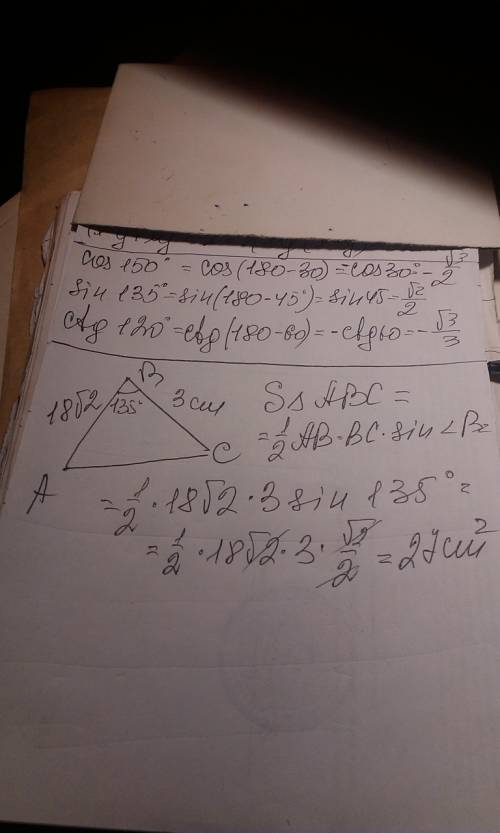 cos 150° = cos(180-30) = cos30° - √3/2
sin 135° = sin(180-45°) = sin45 = √2/2
ctg 120° = ctg(180-60) = -ctg60 = -√3/3
B
18√2
135°
3 см
A
C
S△ABC =
= 1/2 AB·BC·sin∠B=
= 1/2 · 18√2 · 3 sin 135° =
= 1/2 · 18√2 · 3 · √2/2 = 27см²